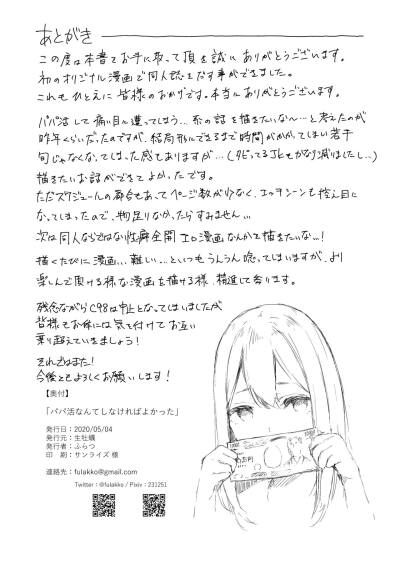 あとがき
この度は本書をお手に取って頂き誠にありがとうございます。
初のオリジナル漫画で同人誌をだす事ができました。
これもひとえに皆様のおかげです。本当にありがとうございます。
パパ活して痛い目に遭ってしまう…系の話を描きたいな〜…と考えたのが
昨年くらいだったのですが、結局形にできるまで時間がかかってしまい若干
旬じゃなくなってしまった感もありますが…(タピってるJKもかなり減りましたし…)
描きたいお話ができてよかったです。
ただスケジュールの都合もあってページ数が少なく、エッチシーンも控え目に
なってしまったので、物足りなかったらすみません…
次は同人ならではな性癖全開エロ漫画なんかも描きたいな…!
描くたびに漫画…難しい…といつもうんうん唸ってしまいますが、より
楽しんで頂ける様な漫画を描ける様、精進して参ります。
残念ながらC98は中止となってしまいましたが
皆様もお体には気を付けてお互い
乗り越えていきましょう!
それではまた!
今後ともよろしくお願いします!
【奥付】
「パパ活なんてしなければよかった」
発行日：2020/05/04
発行元：生牡蠣
発行者：ふらつ
印　刷：サンライズ 様
連絡先：fulakko@gmail.com
Twitter：@fulakko / Pixiv：231251